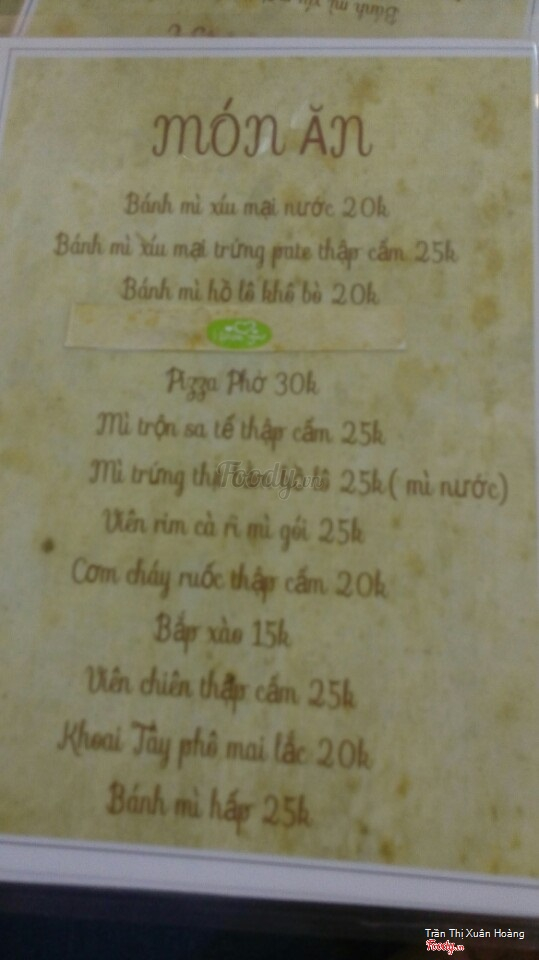 Bánh mì xíu
MÓN ĂN
Bánh mì xíu mại nước 20k
Bánh mì xíu mại trứng pate thập cẩm 25k
Bánh mì hồ lô khô bò 20k
Pizza Phở 30k
Mì trộn sa tế thập cẩm 25k
Mì trứng hồ lô 25k ( mì nước)
Foody.vn
Viên rim cà ri mì gói 25k
Cơm cháy ruốc thập cẩm 20k
Bắp xào 15k
Viên chiên thập cẩm 25k
Khoai Tây phô mai lắc 20k
Bánh mì hấp 25k
Trần Thị Xuân Hoàng
Foody.vn